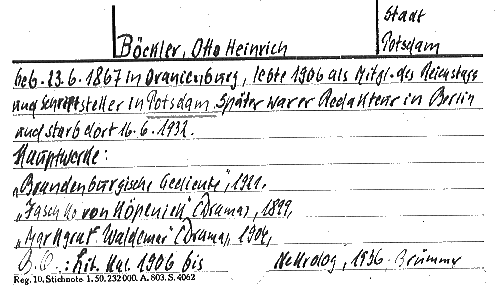 Stadt
Böckler, Otto Heinrich Potsdam
geb. 23.6.1867 in Oranienburg, lebte 1906 als Mitgl. des Reichstags
und Schriftsteller in Potsdam. Später war er Redakteur in Berlin
und starb dort 16.6.1932.
Hauptwerke:
„Brandenburgische Gedichte", 1921.
„Jaschko von Köpenick" (Drama), 1899,
„Markgraf Waldemar" (Drama), 1904,
B.Q.: Lit. Kal. 1906 bis Nekrolog, 1936. Brümmer
Reg. 10. Stichnote 1. 50. 232000. A. 803. S. 4062